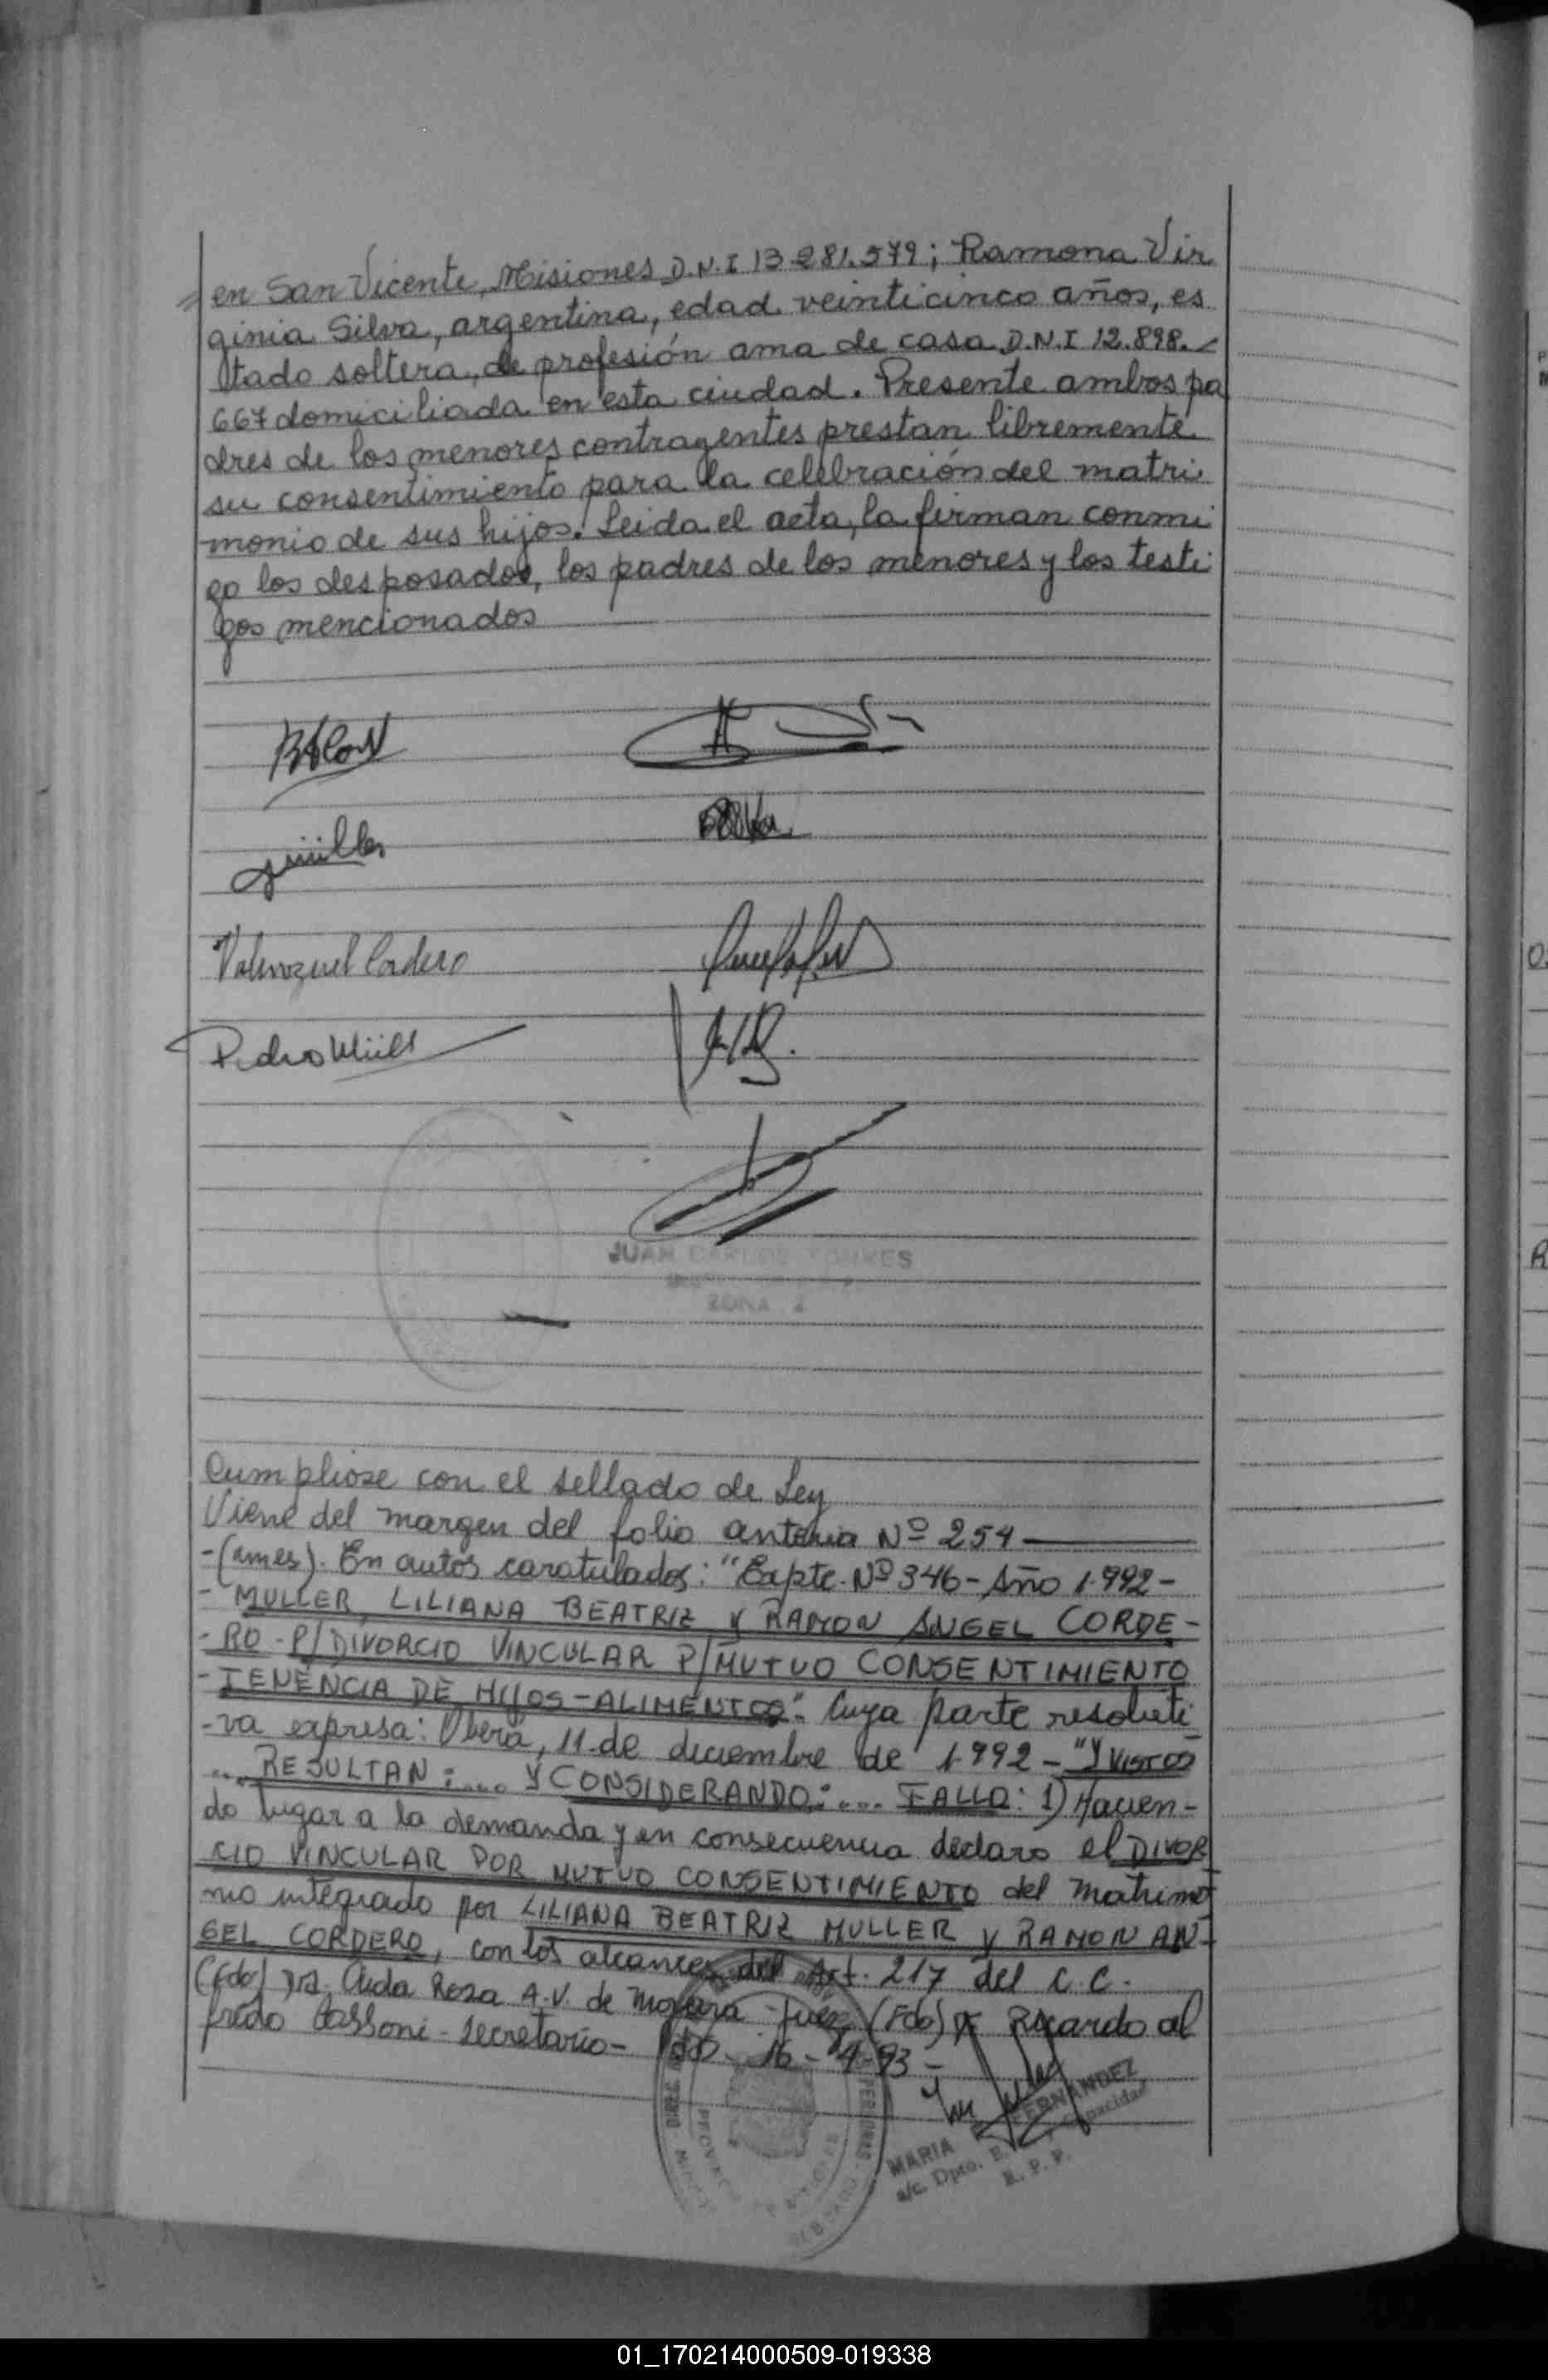 en San Vicente, Misiones D.N.I 13.281.579; Ramona Vir
ginia Silva, argentina, edad veinticinco años, es
tado soltera, de profesión ama de casa D.N.I 12.898.-
667 domiciliada en esta ciudad. Presente ambos pa
dres de los menores contragentes prestan libremente
su consentimiento para la celebración del matri
monio de sus hijos. Leida el acta, la firman conmi
go los desposados, los padres de los menores y los testi
gos mencionados
Pedro Müller
JUAN CARLOS TORRES
ZONA 2
Cumpliose con el sellado de Ley
Viene del margen del folio anterior Nº 254
-(ames). En autos caratulados: "Expte. Nº 346- Año 1.992-
- MULLER, LILIANA BEATRIZ Y RAMON ANGEL CORDE-
- RO - P/DIVORCIO VINCULAR P/MUTUO CONSENTIMIENTO
- TENENCIA DE HIJOS-ALIMENTOS". Cuya parte resoluti
-va expresa: Oberá, 11 de diciembre de 1.992 - "Y VISTOS
... RESULTAN:.... Y CONSIDERANDO:.... FALLO: 1) Hacien-
do lugar a la demanda y en consecuencia declaro el DIVOR
CIO VINCULAR POR MUTUO CONSENTIMIENTO del Matrimo
nio integrado por LILIANA BEATRIZ MULLER Y RAMON AN-
GEL CORDERO, con los alcances del Art. 217 del C.C.-
(Fdo) Dra. Rosa A.V. de Moreira - Juez (Fdo) Dr Ricardo al
fredo Cassoni - Secretario - 16-4-93-
MARIA FERNANDEZ
a/c. Dpto. E. y Capacidad
R. P. P.
01_170214000509-019338